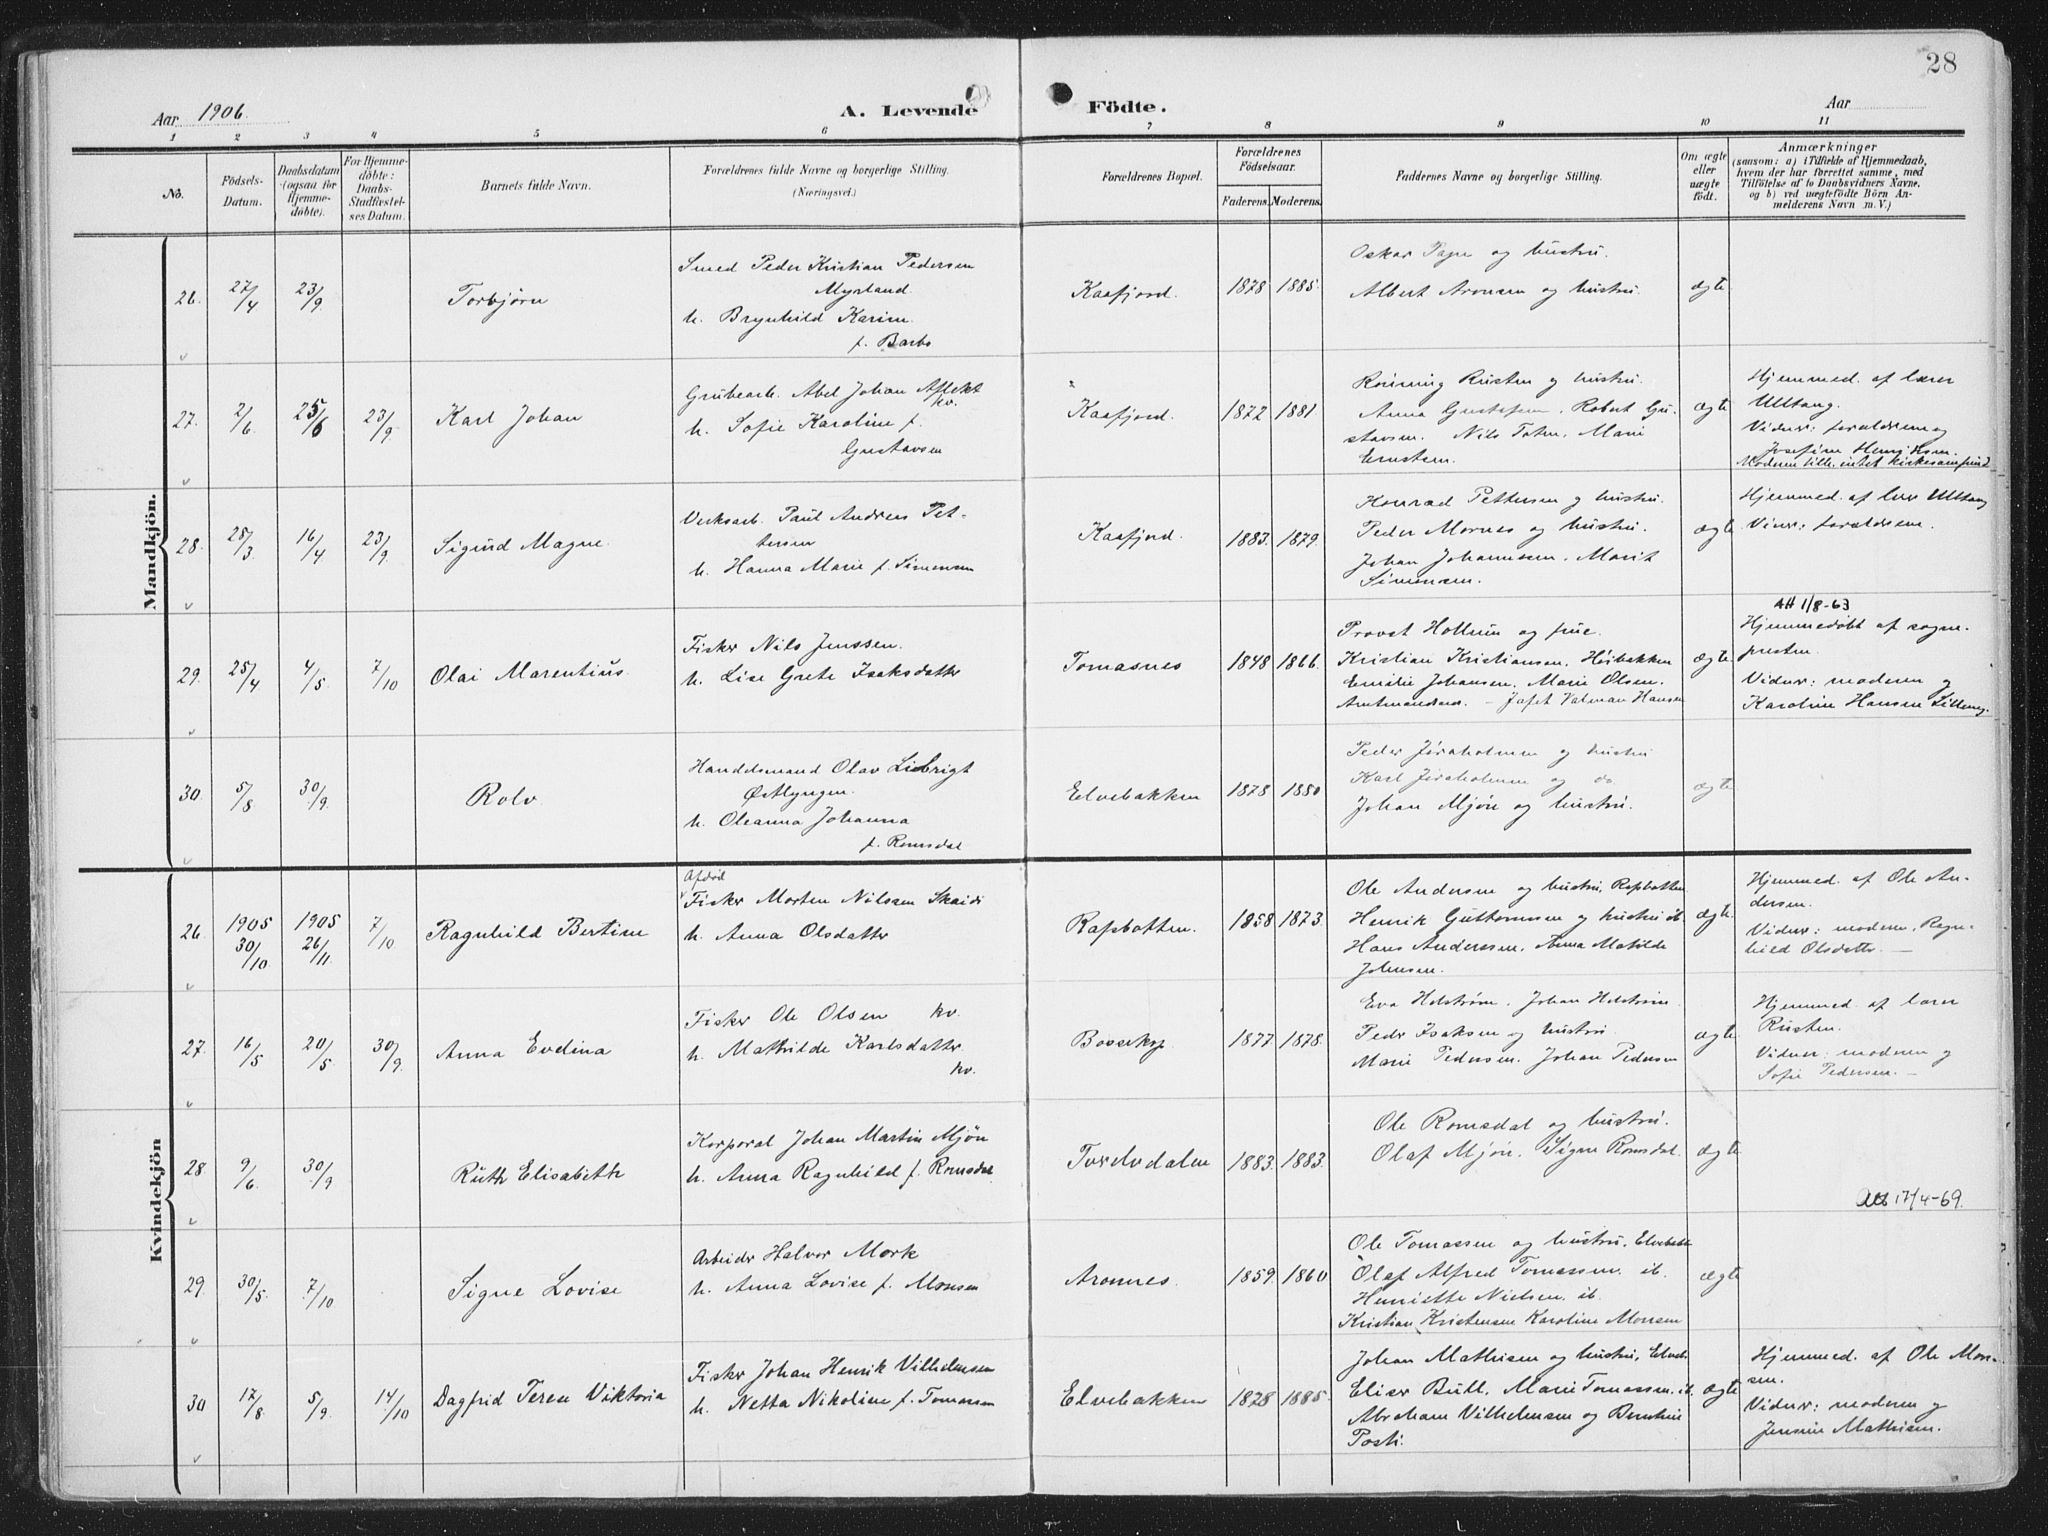 28
Aar 1906. A. Levende Födte. Aar
1 2 3 4 5 6 7 8 9 10 11
No. Födsels-Datum. Daabsdatum (ogsaa for Hjemmedöbte). For Hjemmedöbte: Daabs-Stadfæstelses Datum. Barnets fulde Navn. Forældrenes fulde Navne og borgerlige Stilling. (Næringsvei.) Forældrenes Bopæl. Forældrenes Födselsaar. Faderens. Moderens. Faddernes Navne og borgerlige Stilling. Om ægte eller uægte födt. Anmærkninger (saasom: a) i Tilfælde af Hjemmedaab, hvem der har forrettet samme, med Tilföielse af to Daabsvidners Navne, og b) ved uægtefödte Börn Anmelderens Navn m. V.)
Mandkjön.
26. 27/4 23/9 Torbjörn
Smed Peder Kristian Pedersen
Myrland.
h. Brynhild Karine
f. Barbo
Kaafjord. 1878 1885.
Oskar Pape og hustru.
Albert Aronsen og hustru.
ægte
27. 2/6 25/6 23/9 Karl Johan
Grubearb. Abel Johan Aflekt
kv.
h. Sofie Karoline f.
Gustavsen
Kaafjord. 1872 1881
Rönning Rusten og hustru.
Anna Gustafsen. Robert Gu-
stavsen. Nils Toten. Marie
Ernstsen.
ægte
Hjemmed. af lærer
Ulltang.
Vidner: forældrene og
Josefine Henriksen.
Moderen tilh. intet kirkesamfund
28. 28/3 16/4 23/9 Sigurd Magne.
Verksarb. Paul Andreas Pet-
tersen
h. Hanna Marie f. Simonsen
Kaafjord. 1883. 1879.
Konrad Pettersen og hustru.
Peder Mornes og hustru.
Johan Johannessen. Marit
Simonsen.
ægte
Hjemmed. af lærer Ulltang
Vidner: forældrene.
29. 25/4 4/5 7/10 Olai Marentius.
Fisker Nils Jenssen.
h. Lise Grete Isaksdatter
Tomasnes 1848 1866.
Provst Hollum og frue.
Kristian Kristiansen, Höibakken
Emilie Johansen. Marie Olsen.
Amtmandsnes. – Jafet Valman Hansen
ægte
AH 1/8-63
Hjemmedöbt af sogne-
presten.
Vidner: moderen og
Karoline Hansen
30. 5/8 30/9. Rolv.
Handelsmand Olav Liebrigt
Østlyngen.
h. Oleanna Johanna
f. Romsdal
Elvebakken 1878 1880
Peder Jöraholmen og hustru
Karl Jöraholmen og do
Johan Mjön og hustru.
ægte
Kvindekjön
26. 1905 30/10 1905 26/11. 7/10 Ragnhild Bertine
Afdöd
Fisker Morten Nilssen Skaidi
h. Anna Olsdatter
Rafsbotten. 1858 1873.
Ole Andersen og hustru, Rafsbotten
Henrik Guttormsen og hustru ib.
Hans Anderssen. Anna Matilde
Johnsen.
ægte
Hjemmed. af Ole An-
dersen.
Vidner: moderen. Ragn-
hild Olsdatter. –
27. 16/5 20/5 30/9. Anna Evelina
Fisker Ole Olsen kv.
h. Mathilde Karlsdatter
kv.
Bossekop. 1877. 1878.
Eva Helström. Johan Helström.
Peder Isaksen og hustru.
Marie Pedersen. Johan Pedersen
ægte
Hjemmed. af lærer
Rusten.
Vidner: moderen og
Sofie Pedersen. –
28 9/6 30/9 Ruth Elisabeth
Korporal Johan Martin Mjön
h. Anna Ragnhild f. Romsdal.
Tverelvdalen 1883. 1883.
Ole Romsdal og hustru.
Olaf Mjön. Signe Romsdal.
ægte
17/4-69.
29. 30/5. 7/10 Signe Lovise
Arbeider Halvor Mork
h. Anna Lovise f. Monsen
Aronnes. 1859. 1860
Ole Tomassen og hustru. Elvebakk.
Olaf Alfred Tomassen. ib.
Henriette Nielsen. ib.
Kristian Kristensen Karoline Monsen
ægte
30 17/8. 5/9. 14/10 Dagfrid Terese Viktoria
Fisker Johan Henrik Vilhelmsen
h. Netta Nikoline f. Tomassen
Elvebakken 1878 1885.
Johan Mathisen og hustru, Elveb.
Eliser Bull. Marie Tomassen. ib.
Abraham Vilhelmsen og Bernhine
Posti.
ægte
Hjemmed. af Ole Mon-
sen.
Vidner: moderen og
Jensine Mathisen.